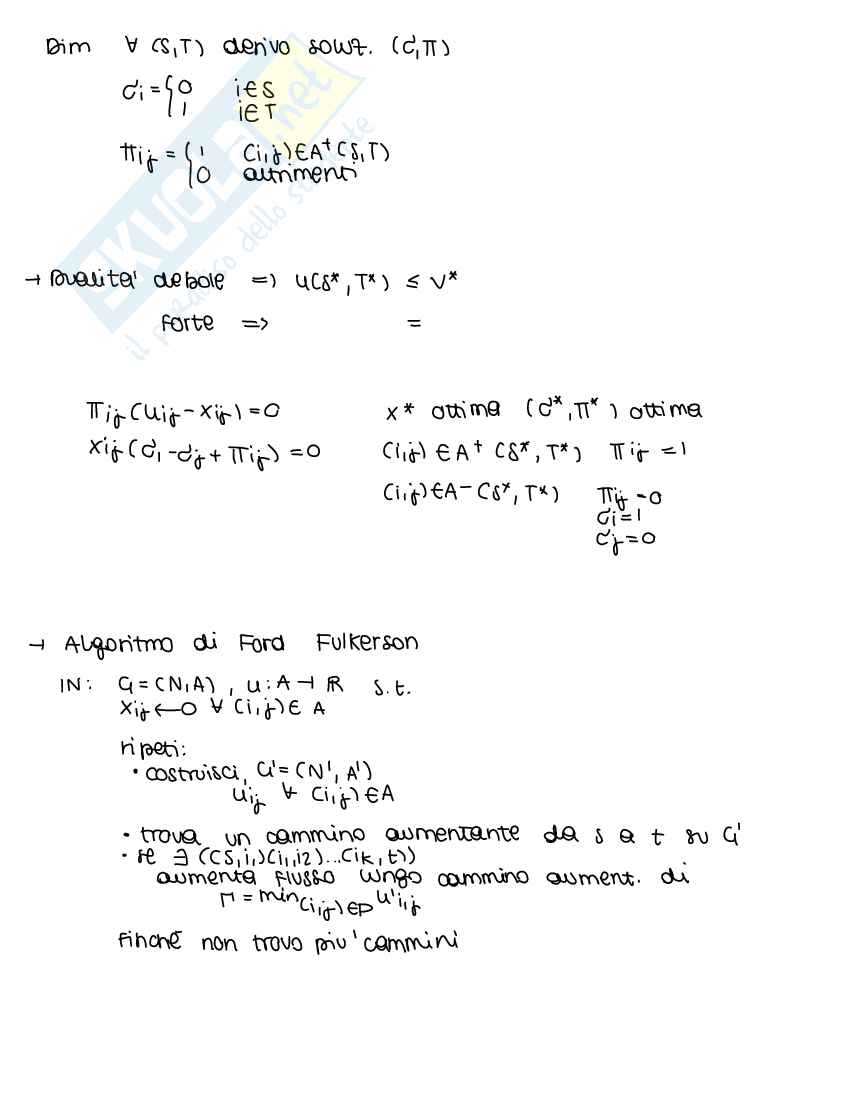 Dim ∀ (S,T) derivo soluz. (σ,π)
σi = { 0 i∈S
1 i∈T
πij = { 1 (i,j)∈A⁺(S,T)
0 altrimenti
→ Dualita' debole => u(S*,T*) ≤ V*
forte => =
πij(uij-xij)=0 x* ottima (σ*,π*) ottima
xij(σi-σj+πij)=0 (i,j)∈A⁺(S*,T*) πij=1
(i,j)∈A-(S*,T*) πij=0
σi=1
σj=0
→ Algoritmo di Ford Fulkerson
IN: G=(N,A), u:A→R s.t.
xij←0 ∀ (i,j)∈A
ripeti:
• costruisci, G'=(N',A')
u'ij ∀ (i,j)∈A
• trova un cammino aumentante da s a t su G'
• se ∃ ((s,i1)(i1,i2)...(ik,t))
aumenta flusso lungo cammino aument. di
Γ=min(i,j)∈P u'i,j
finché non trovo piu' cammini
SKUOLA.net
il paradiso dello studente